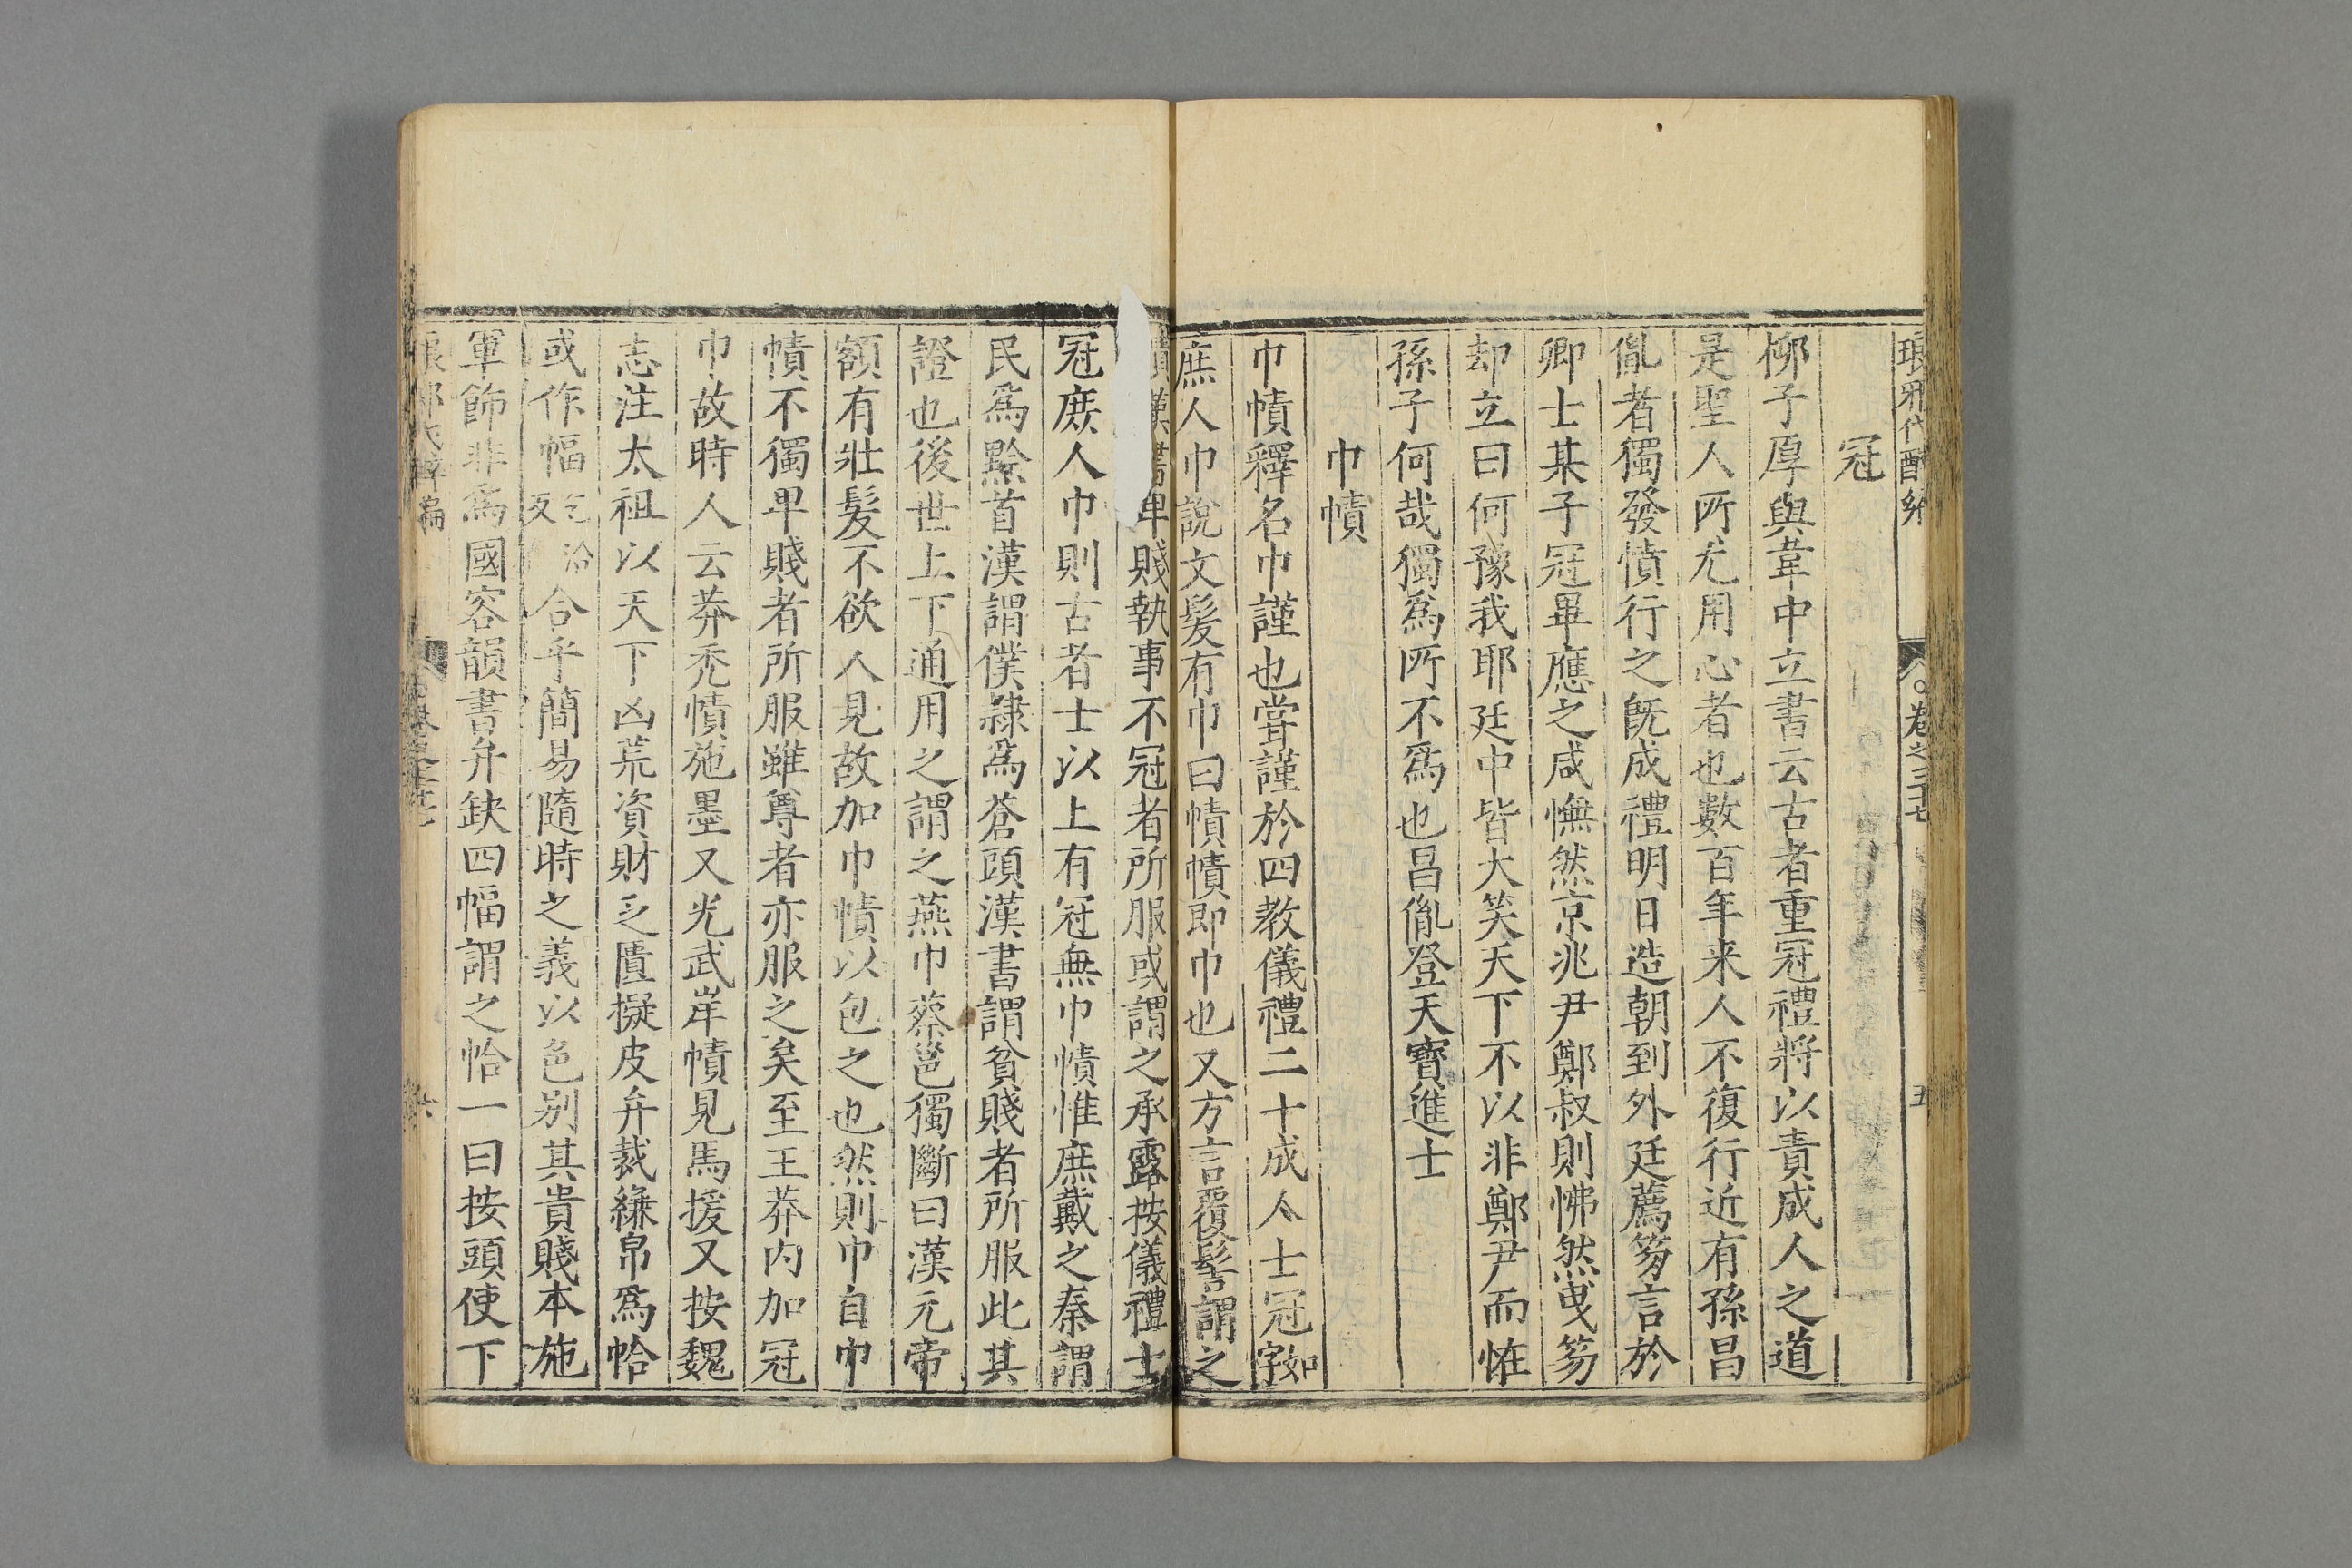 琅邪代醉編 卷之三十七 五
冠
栁子厚與韋中立書云古者重冠禮將以責成人之道
是聖人所尤用心者也數百年来人不復行近有孫昌
胤者獨發憤行之旣成禮明日造朝到外廷薦笏言於
卿士某子冠畢應之咸憮然京兆尹鄭叔則怫然曵笏
却立曰何豫我耶廷中皆大笑天下不以非鄭尹而恠
孫子何哉獨爲所不爲也昌胤登天寶進士
巾幘
巾幘釋名巾謹也當謹於四教儀禮二十成人士冠字如
庶人巾說文髮有巾曰幘幘即巾也又方言覆髻謂之
幘漢書卑賤執事不冠者所服或謂之承露按儀禮士
冠庶人巾則古者士以上有冠無巾幘惟庶戴之秦謂
民爲黔首漢謂僕隸爲蒼頭漢書謂貧賤者所服此其
證也後世上下通用之謂之燕巾蔡邕獨斷曰漢元帝
額有壯髮不欲人見故加巾幘以包之也然則巾自巾
幘不獨卑賤者所服雖尊者亦服之矣至王莽内加冠
巾故時人云莽禿幘施墨又光武岸幘見馬援又按魏
志注太祖以天下凶荒資財乏匱擬皮弁裁縑帛爲帢
或作幍乞洽反合乎簡易隨時之義以色别其貴賤本施
軍飾非爲國容韻書弁缺四幅謂之帢一曰按頭使下
琅邪代醉編 卷之三十七 六